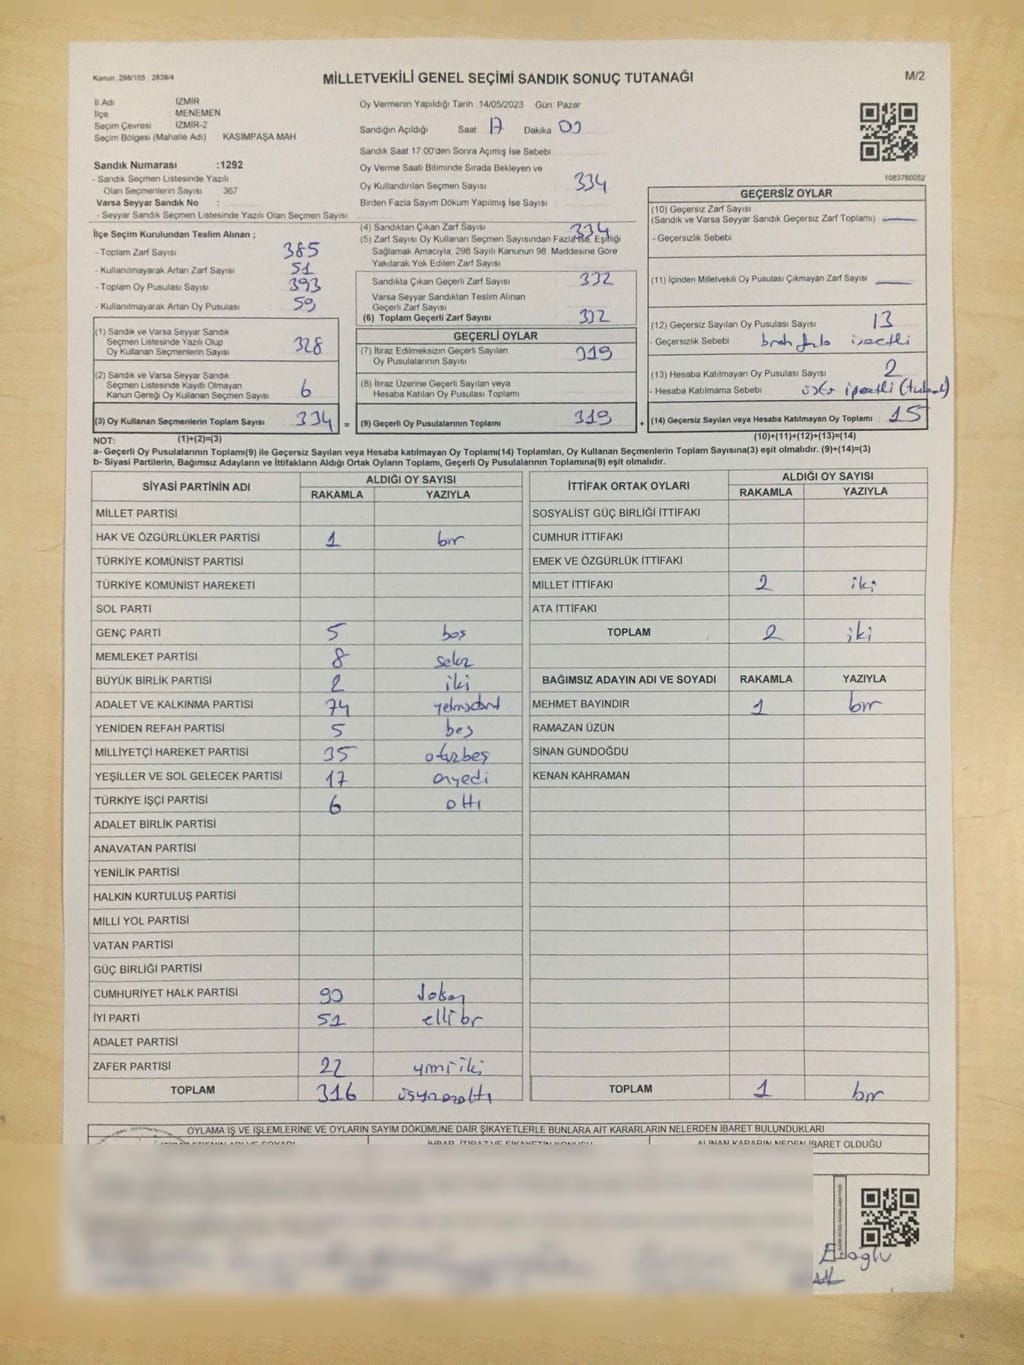 Kanun: 298/105 , 2839/4
MİLLETVEKİLİ GENEL SEÇİMİ SANDIK SONUÇ TUTANAĞI
M/2
İl Adı İZMİR
İlçe MENEMEN
Seçim Çevresi İZMİR-2
Seçim Bölgesi (Mahalle Adı) KASIMPAŞA MAH
Sandık Numarası :1292
- Sandık Seçmen Listesinde Yazılı
Olan Seçmenlerin Sayısı 367
Varsa Seyyar Sandık No :
- Seyyar Sandık Seçmen Listesinde Yazılı Olan Seçmen Sayısı
Oy Vermenin Yapıldığı Tarih 14/05/2023 Gün Pazar
Sandığın Açıldığı Saat 17 Dakika 00
Sandık Saat 17 00'den Sonra Açımış İse Sebebi
Oy Verme Saati Bitiminde Sırada Bekleyen ve
Oy Kullandırılan Seçmen Sayısı 334
Birden Fazla Sayım Döküm Yapılmış İse Sayısı :
1083760052
İlçe Seçim Kurulundan Teslim Alınan ;
- Toplam Zarf Sayısı 385
- Kullanılmayarak Artan Zarf Sayısı 51
- Toplam Oy Pusulası Sayısı 393
- Kullanılmayarak Artan Oy Pusulası 59
(1) Sandık ve Varsa Seyyar Sandık
Seçmen Listesinde Yazılı Olup
Oy Kullanan Seçmenlerin Sayısı 328
(2) Sandık ve Varsa Seyyar Sandık
Seçmen Listesinde Kayıtlı Olmayan
Kanun Gereği Oy Kullanan Seçmen Sayısı 6
(3) Oy Kullanan Seçmenlerin Toplam Sayısı 334 =
(4) Sandıktan Çıkan Zarf Sayısı 334
(5) Zarf Sayısı Oy Kullanan Seçmen Sayısından Fazla İse, Eşitliği
Sağlamak Amacıyla, 298 Sayılı Kanunun 98 Maddesine Göre
Yakılarak Yok Edilen Zarf Sayısı
Sandıkta Çıkan Geçerli Zarf Sayısı 332
Varsa Seyyar Sandıktan Teslim Alınan
Geçerli Zarf Sayısı
(6) Toplam Geçerli Zarf Sayısı 332
GEÇERLİ OYLAR
(7) İtiraz Edilmeksizin Geçerli Sayılan
Oy Pusulalarının Sayısı 319
(8) İtiraz Üzerine Geçerli Sayılan veya
Hesaba Katılan Oy Pusulası Toplamı
(9) Geçerli Oy Pusulalarının Toplamı 319 +
GEÇERSİZ OYLAR
(10) Geçersiz Zarf Sayısı
(Sandık ve Varsa Seyyar Sandık Geçersiz Zarf Toplamı)
- Geçersizlik Sebebi
(11) İçinden Milletvekili Oy Pusulası Çıkmayan Zarf Sayısı
(12) Geçersiz Sayılan Oy Pusulası Sayısı 13
- Geçersizlik Sebebi
(13) Hesaba Katılmayan Oy Pusulası Sayısı 2
- Hesaba Katılmama Sebebi
(14) Geçersiz Sayılan veya Hesaba Katılmayan Oy Toplamı 15
NOT: (1)+(2)=(3)
(10)+(11)+(12)+(13)=(14)
a- Geçerli Oy Pusulalarının Toplamı(9) ile Geçersiz Sayılan veya Hesaba katılmayan Oy Toplamı(14) Toplamları, Oy Kullanan Seçmenlerin Toplam Sayısına(3) eşit olmalıdır. (9)+(14)=(3)
b- Siyasi Partilerin, Bağımsız Adayların ve İttifakların Aldığı Ortak Oyların Toplamı, Geçerli Oy Pusulalarının Toplamına(9) eşit olmalıdır.
SİYASİ PARTİNİN ADI ALDIĞI OY SAYISI
RAKAMLA YAZIYLA
MİLLET PARTİSİ
HAK VE ÖZGÜRLÜKLER PARTİSİ 1 bir
TÜRKİYE KOMÜNİST PARTİSİ
TÜRKİYE KOMÜNİST HAREKETİ
SOL PARTİ
GENÇ PARTİ 5 beş
MEMLEKET PARTİSİ 8 sekiz
BÜYÜK BİRLİK PARTİSİ 2 iki
ADALET VE KALKINMA PARTİSİ 74 yetmişdört
YENİDEN REFAH PARTİSİ 5 beş
MİLLİYETÇİ HAREKET PARTİSİ 35 otuzbeş
YEŞİLLER VE SOL GELECEK PARTİSİ 17 onyedi
TÜRKİYE İŞÇİ PARTİSİ 6 altı
ADALET BİRLİK PARTİSİ
ANAVATAN PARTİSİ
YENİLİK PARTİSİ
HALKIN KURTULUŞ PARTİSİ
MİLLİ YOL PARTİSİ
VATAN PARTİSİ
GÜÇ BİRLİĞİ PARTİSİ
CUMHURİYET HALK PARTİSİ 90 doksan
İYİ PARTİ 51 ellibir
ADALET PARTİSİ
ZAFER PARTİSİ 22 yirmiiki
TOPLAM 316 üçyüzonaltı
İTTİFAK ORTAK OYLARI ALDIĞI OY SAYISI
RAKAMLA YAZIYLA
SOSYALİST GÜÇ BİRLİĞİ İTTİFAKI
CUMHUR İTTİFAKI
EMEK VE ÖZGÜRLÜK İTTİFAKI
MİLLET İTTİFAKI 2 iki
ATA İTTİFAKI
TOPLAM 2 iki
BAĞIMSIZ ADAYIN ADI VE SOYADI RAKAMLA YAZIYLA
MEHMET BAYINDIR 1 bir
RAMAZAN ÜZÜN
SİNAN GÜNDOĞDU
KENAN KAHRAMAN
TOPLAM 1 bir
OYLAMA İŞ VE İŞLEMLERİNE VE OYLARIN SAYIM DÖKÜMÜNE DAİR ŞİKAYETLERLE BUNLARA AİT KARARLARIN NELERDEN İBARET BULUNDUKLARI
İHBAR, İTİRAZ VE ŞİKAYETİN KONUSU ALINAN KARARIN NEDEN İBARET OLDUĞU